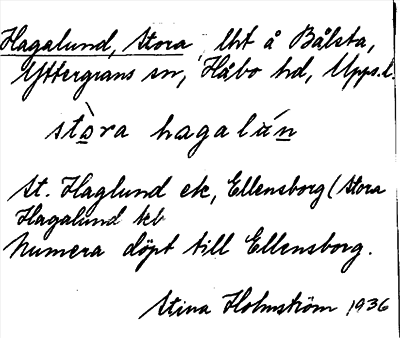 Hagalund, Stora, lht å Bålsta,
Yttergrans sn, Håbo hd, Upps.l.
stòra hagalu̇́n
St. Haglund ek, Ellensborg (Stora
Hagalund kb
Numera döpt till Ellensborg.
Stina Holmström 1936